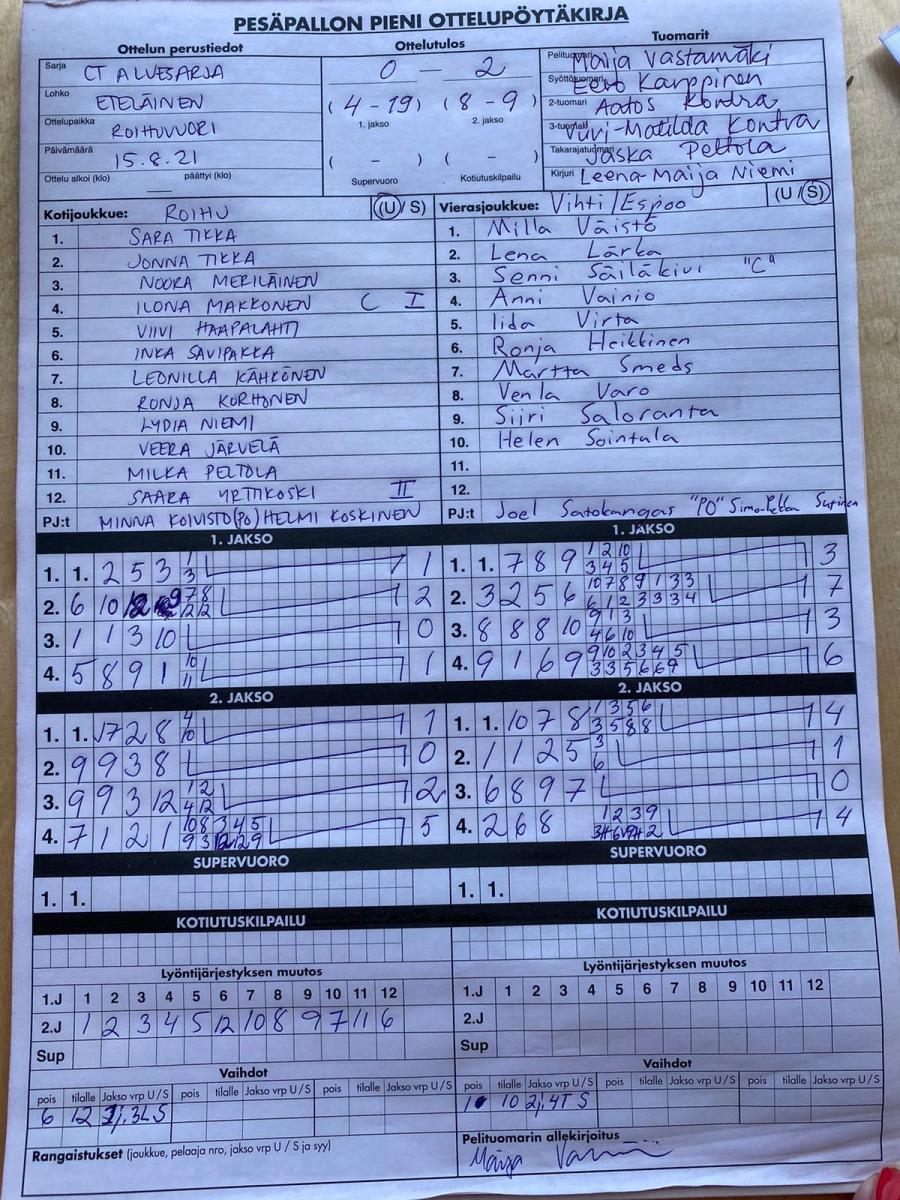 PESÄPALLON PIENI OTTELUPÖYTÄKIRJA
Ottelun perustiedot
Sarja CT ALUESARJA
Lohko ETELÄINEN
Ottelupaikka ROIHUVUORI
Päivämäärä 15.8.21
Ottelu alkoi (klo) — päättyi (klo)
Ottelutulos
0 — 2
(4 - 19) (8 - 9)
1. jakso 2. jakso
( - ) ( - )
Supervuoro Kotiutuskilpailu
Tuomarit
Pelituomari Maija Vastamäki
Syöttötuomari Eero Karppinen
2-tuomari Aatos Kontra
3-tuomari Viivi-Matilda Kontra
Takarajatuomari Jaska Peltola
Kirjuri Leena-Maija Niemi
Kotijoukkue: ROIHU (U/S)
1. SARA TIKKA
2. JONNA TIKKA
3. NOORA MERILÄINEN
4. ILONA MAKKONEN C I
5. VIIVI HAAPALAHTI
6. INKA SAVIPAKKA
7. LEONILLA KÄHKÖNEN
8. RONJA KORHONEN
9. LYDIA NIEMI
10. VEERA JÄRVELÄ
11. MILKA PELTOLA
12. SAARA YRTTIKOSKI II
PJ:t MINNA KOIVISTO(PO) HELMI KOSKINEN
Vierasjoukkue: Vihti/Espoo (U/S)
1. Milla Väistö
2. Lena Lärka
3. Senni Säiläkivi "C"
4. Anni Vainio
5. Iida Virta
6. Ronja Heikkinen
7. Martta Smeds
8. Venla Varo
9. Siiri Saloranta
10. Helen Sointula
11.
12.
PJ:t Joel Satokangas "PO" Simo-Pekka
1. JAKSO
1. 1. 2 5 3 1 3 1
2. 6 10 12 9 7 8 12 12 2
3. 1 1 3 10 0
4. 5 8 9 1 10 11 1
2. JAKSO
1. 1. 7 2 8 4 10 1
2. 9 9 3 8 0
3. 9 9 3 12 1 2 4 12 2
4. 7 1 2 1 10 8 3 4 5 9 3 12 12 9 5
SUPERVUORO
1. 1.
KOTIUTUSKILPAILU
1. JAKSO
1. 1. 7 8 9 1 2 10 3 4 5 3
2. 3 2 5 6 10 7 8 9 1 3 3 6 1 2 3 3 3 4 7
3. 8 8 8 10 9 1 3 4 6 10 3
4. 9 1 6 9 9 10 2 3 4 5 3 3 5 6 6 9 6
2. JAKSO
1. 1. 10 7 8 1 3 5 6 3 5 8 8 4
2. 1 1 2 5 3 6 1
3. 6 8 9 7 0
4. 2 6 8 1 2 3 9 4
SUPERVUORO
1. 1.
KOTIUTUSKILPAILU
Lyöntijärjestyksen muutos
1.J 1 2 3 4 5 6 7 8 9 10 11 12
2.J 1 2 3 4 5 12 10 8 9 7 11 6
Sup
Vaihdot
pois tilalle Jakso vrp U/S pois tilalle Jakso vrp U/S pois tilalle Jakso vrp U/S
6 12 1j, 3L S
Rangaistukset (joukkue, pelaaja nro, jakso vrp U / S ja syy)
Lyöntijärjestyksen muutos
1.J 1 2 3 4 5 6 7 8 9 10 11 12
2.J
Sup
Vaihdot
pois tilalle Jakso vrp U/S pois tilalle Jakso vrp U/S pois tilalle Jakso vrp U/S
1 10 2j, 4T S
Pelituomarin allekirjoitus
Maija